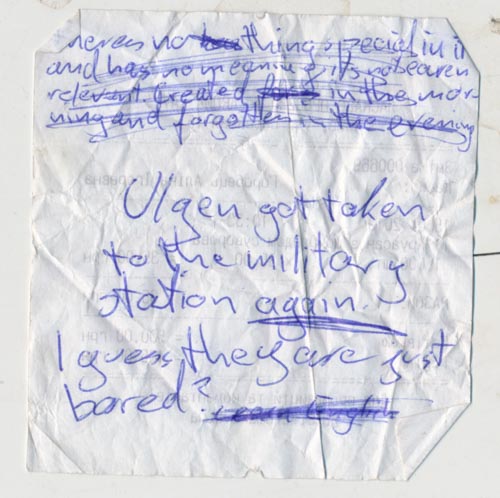 no thing special in it
and has no meaning, its not bearen
relevent. Created in the mor-
ning and forgotten in the evening
Ulgen got taken
to the military
station again.
I guess they are just
bored?